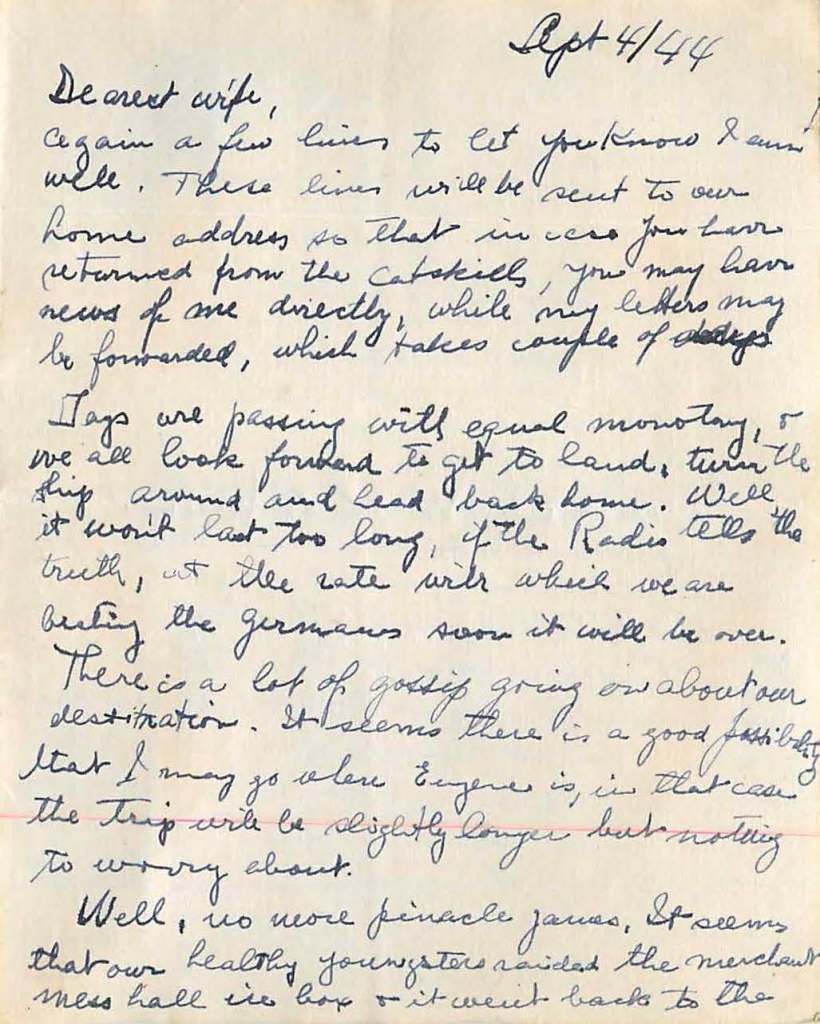 Sept 4/44
Dearest wife,
again a few lines to let you know I am
well. These lines will be sent to our
home address so that in case you have
returned from the Catskills, you may have
news of me directly, while my letters may
be forwarded, which takes couple of days
Days are passing with equal monotony, &
we all look forward to get to land, turn the
ship around and head back home. Well,
it won't last too long, if the Radio tells the
truth, at the rate with which we are
beating the Germans soon it will be over.
There is a lot of gossip going on about our
destination. It seems there is a good possibility
that I may go where Eugene is, in that case
the trip will be slightly longer but nothing
to worry about.
Well, no more pinacle games. It seems
that our healthy youngsters raided the merchant
mess hall ice box & it went back to the